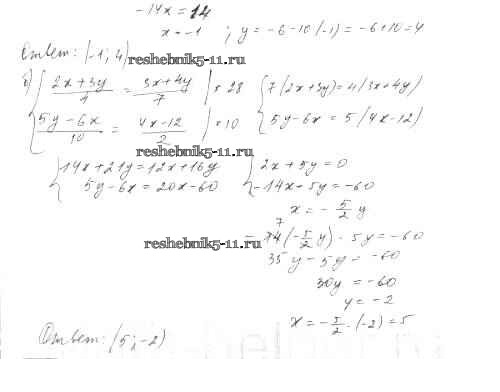 -14x = 14
x = -1 ; y = -6-10(-1) = -6+10 = 4
Ответ: (-1; 4)
reshebnik5-11.ru
б) { (2x+3y)/4 = (3x+4y)/7 | × 28 { 7(2x+3y)=4(3x+4y)
(5y-6x)/10 = (4x-12)/2 | × 10 5y-6x = 5(4x-12)
{ 14x+21y=12x+16y { 2x+5y=0
5y-6x=20x-60 -14x+5y=-60
x = - 5/2 y
reshebnik5-11.ru
-14(-5/2 y) - 5y = -60
35y-5y = -60
30y = -60
y = -2
x = - 5/2 · (-2) = 5
Ответ: (5; -2)